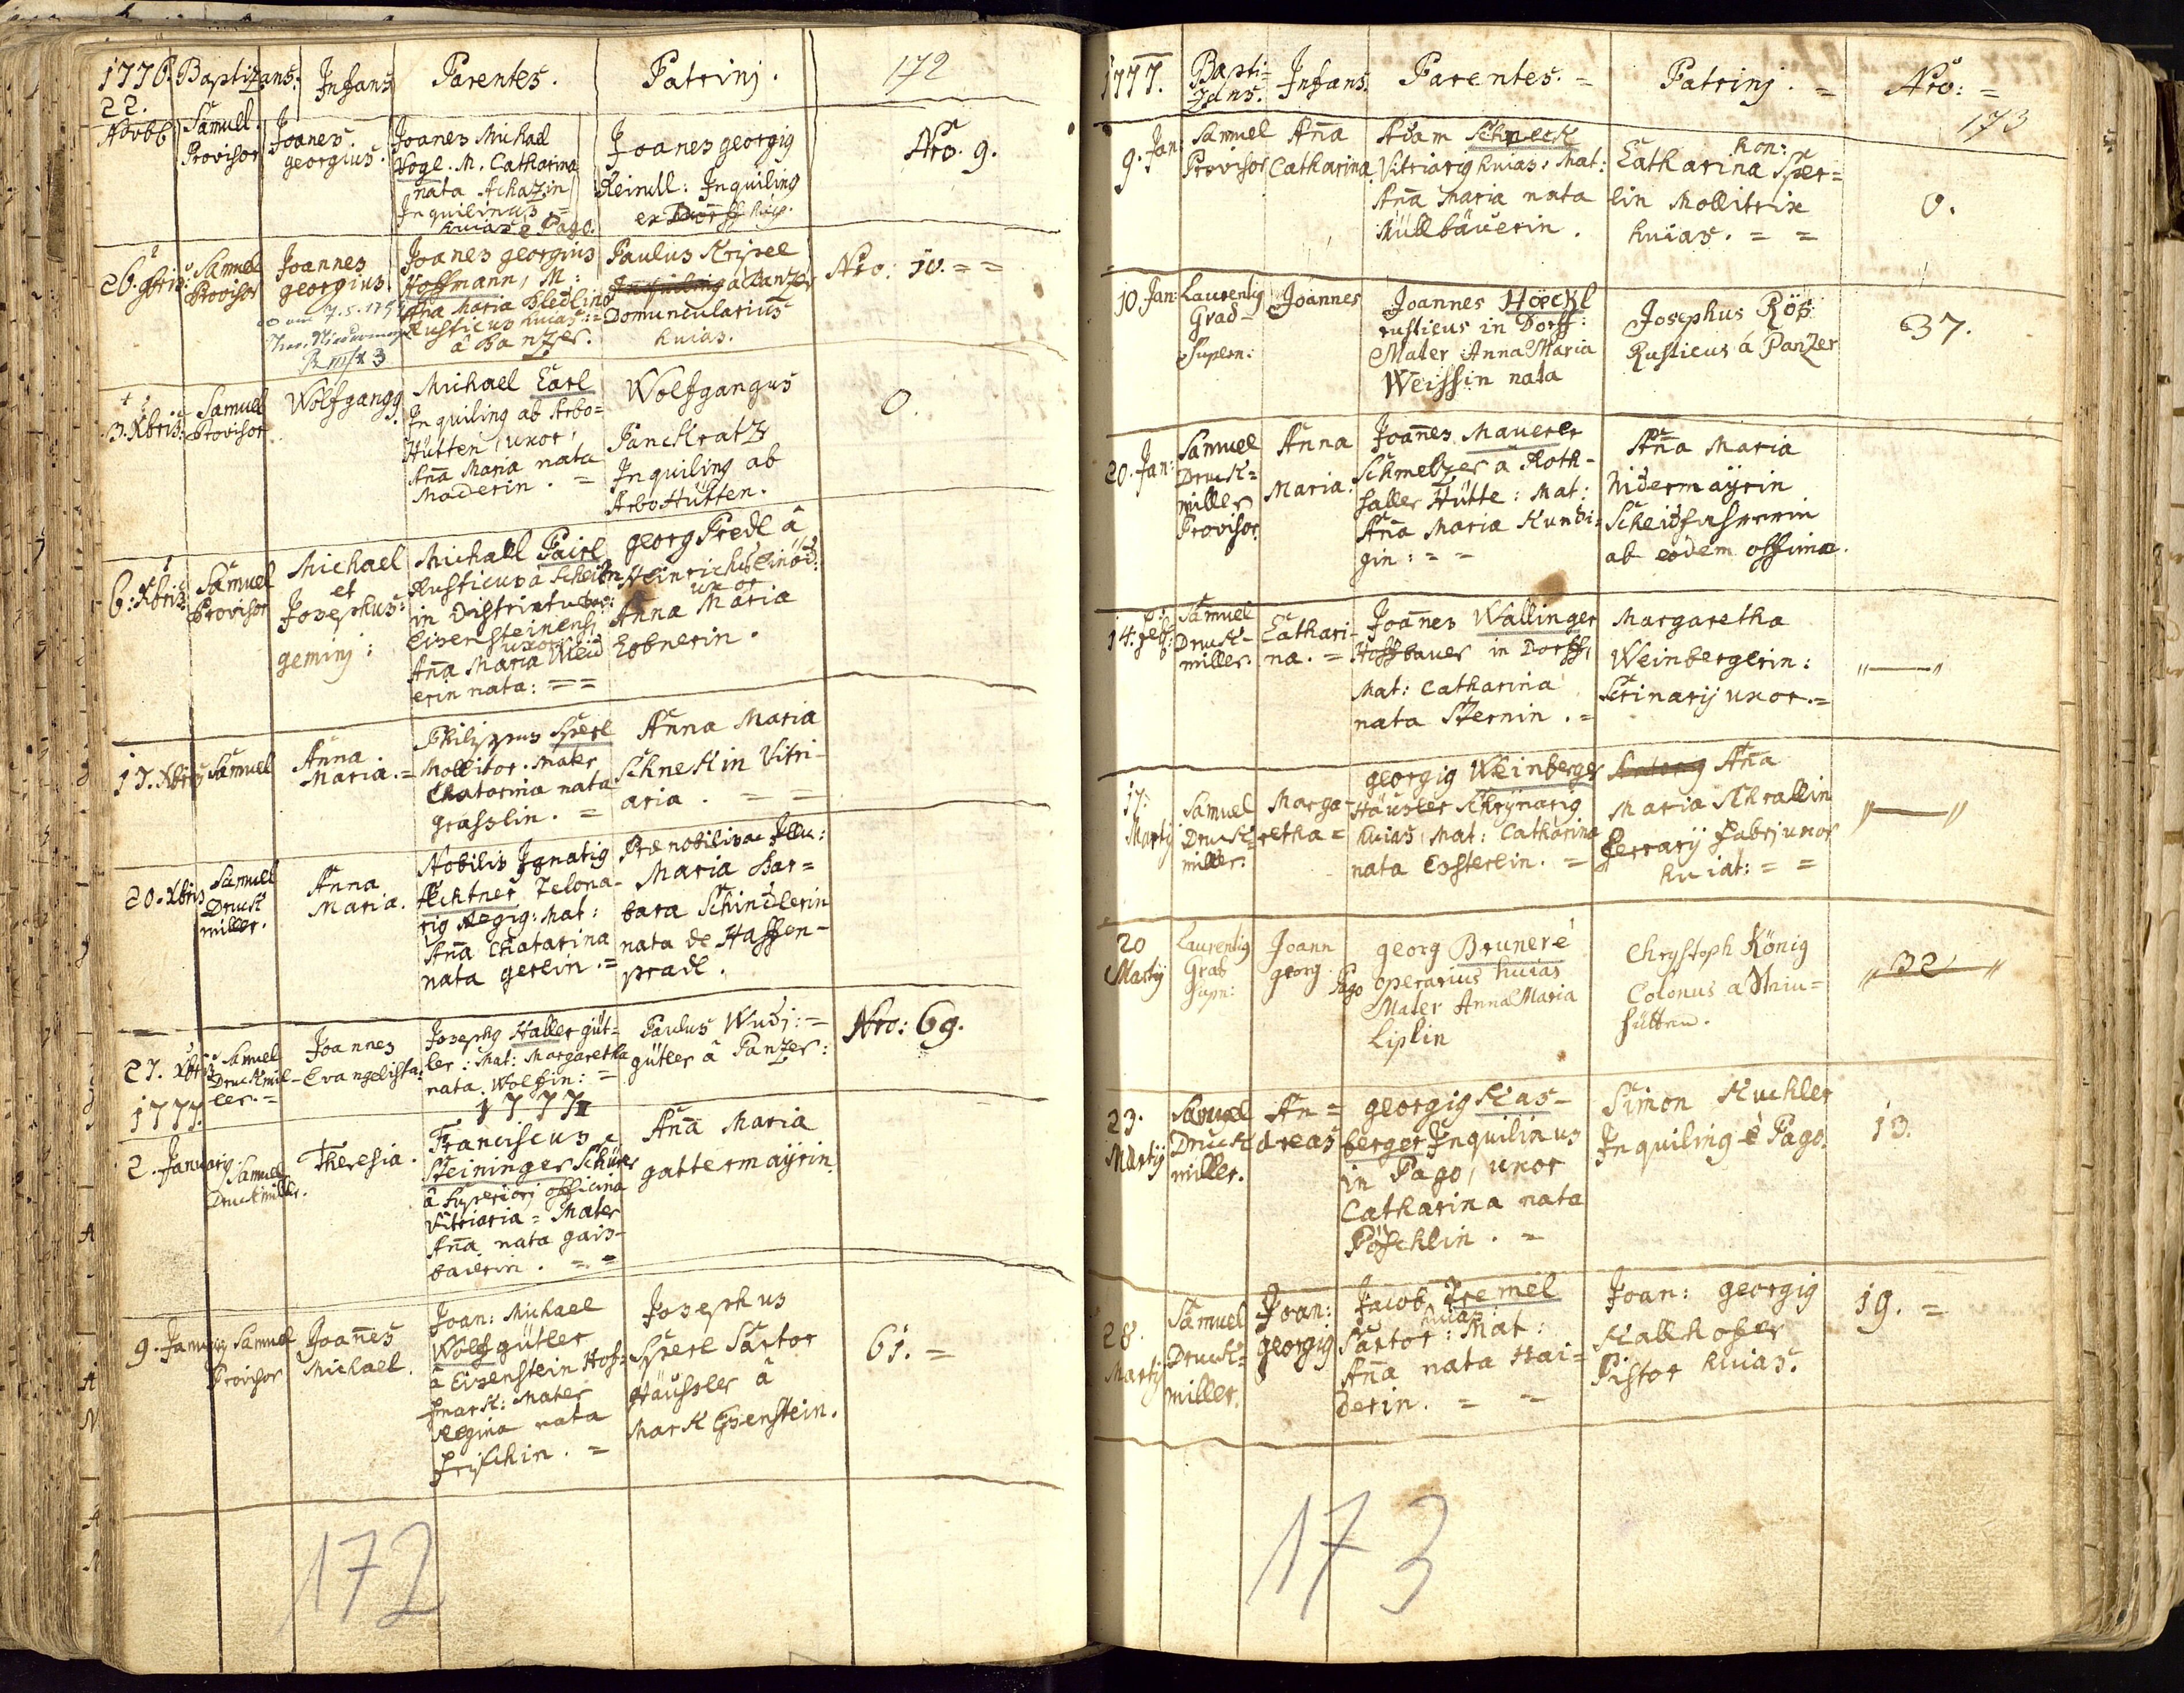 1776. Baptizans. Infans Parentes. Patrinj. 172
22. Novbb Samuel Provisor
Joanes georgius.
Joanes Michael
Vogl. M. Catharina
nata Achazin
Inquilinus =
huias e Pago.
Joanes georgig
Reindl: Inquiling
ex Dorff huja.
Nro. 9.
26. 9bris: Samuel Provisor
Joannes georgius
Joanes georgius
Hoffmann, M:
Aña Maria Bledlin
Rusticus huias: =
â Banzer.
Paulus Krisel
Inquiling â Panzer
Domuncularius
huias.
Nro. 10. = =
3. Xbris: Samuel Provisor
Wolfgangg.
Michael Carl
Inquiling ab Arbo=
Hütten, uxor,
Aña Maria nata
Maderin. =
Wolfgangus
Panckratz
Inquiling ab
Arbo Hütten.
0.
6: Xbris Samuel Provisor
Michael
et
Josephus:
geminj:
Michael Pairl
Rusticus a Scheibn
in Districtu
Eisensteinensj
uxor
Aña Maria Weid
erin nata: = =
georg Predl â
Heinrichs Einöd:
uxor
Anna Maria
Eobnerin.
17. Xbris Samuel
Anna
Maria. =
Philippus Sperl
Mollitor. Mater
Chatarina nata
grasslin. =
Anna Maria
Schneckin Vitri-
aria. = =
20. Xbris Samuel
Druck
miller.
Anna
Maria.
Nobilis Ignatig
Fechtner Telona-
rig Regig: Mat:
Aña Chatarina
nata gerlin. =
Prænobilis ac Illu:
Maria Bar=
bara Schindlerin
nata de Haffen-
pradl.
27. Xbris Samuel
Druckmil-
ler. =
Joannes
Evangelista:
Josephg Haller güt-
ler: Mat: Margaretha
nata Wolfin: =
Paulus Wudj: =
gütler â Panzer:
Nro: 69.
1777.
1777
2. January: Samuel
Druckmiller.
Theresia.
Franciscus
Steininger Schürer
â Superiorj officina
Vitriaria = Mater
Aña nata gais-
baierin. = =
Aña Maria
gattermaÿrin.
9. January Samuel
Provisor
Joañes
Michael.
Joan: Michael
Wolf gütler
â Eisenstein Hof=
mark: Mater
Regina nata
Frischin. =
Josephus
Sperl Sartor
Häusler â
Mark Eisenstein.
61. =
172
1777. Bapti=
zans. Infans. Parentes. = Patrinj. = Nro: =
173
9. Jan: Samuel
Provisor
Aña
Catharina
Adam Schneck
Vitriarig huias: Mat:
Aña Maria nata
Müllbäuerin.
hon:
Catharina Sper=
lin Mollitrix
huias. = =
0.
10. Jan: Laurentig
Grad=
Supern:
Joannes
Joannes Höeckl
rusticus in Dorff:
Mater Anna Maria
Weissin nata
Josephus Rös
Rusticus á Panzer
37.
20. Jan: Samuel
Druck=
miller
Provisor
Anna
Maria.
Joañes Maurer
Schmelzer a Roth-
haller Hütte: Mat:
Aña Maria Kundi=
gin: = =
Aña Maria
Nidermaÿrin
ab eodem offiina.
14. Feb: Samuel
Druck-
miller
Cathari-
na. =
Joañes Wallinger
Hoffbauer in Dorff,
Mat: Catharina
nata Sternin. =
Margaretha
Weinbergerin:
Scrinarij uxor. =
„—„
17.
Martij Samuel
Druck-
miller.
Marga-
retha =
georgig Weinberger
Häusler Schrynarig
huias, Mat: Catharina
nata Esterlin. =
Aña
Maria Schrallin
Ferrarij Fabrj uxor
huiat: = =
„—„
20
Martij Laurentig
Grad
supn:
Joann
georg
georg Bruneré
Pago operarius huias
Mater Anna Maria
Liplin
Chrystoph König
Colonus a Striu=
hütten.
„32„
23.
Martij Samuel
Druck
miller.
An=
dreas
georgig Kas-
berger Inquilinus
in Pago, uxor
Catharina nata
Pöschlin. =
Simon Kuchler
Inquiling è Pago.
13.
28.
Martij Samuel
Druck=
miller.
Joan:
georgig
Jacob Tremel
huias
Sartor: Mat:
Aña nata Hai=
derin. = =
Joan: georgig
Kallhofer
Pistor huias.
19. =
173